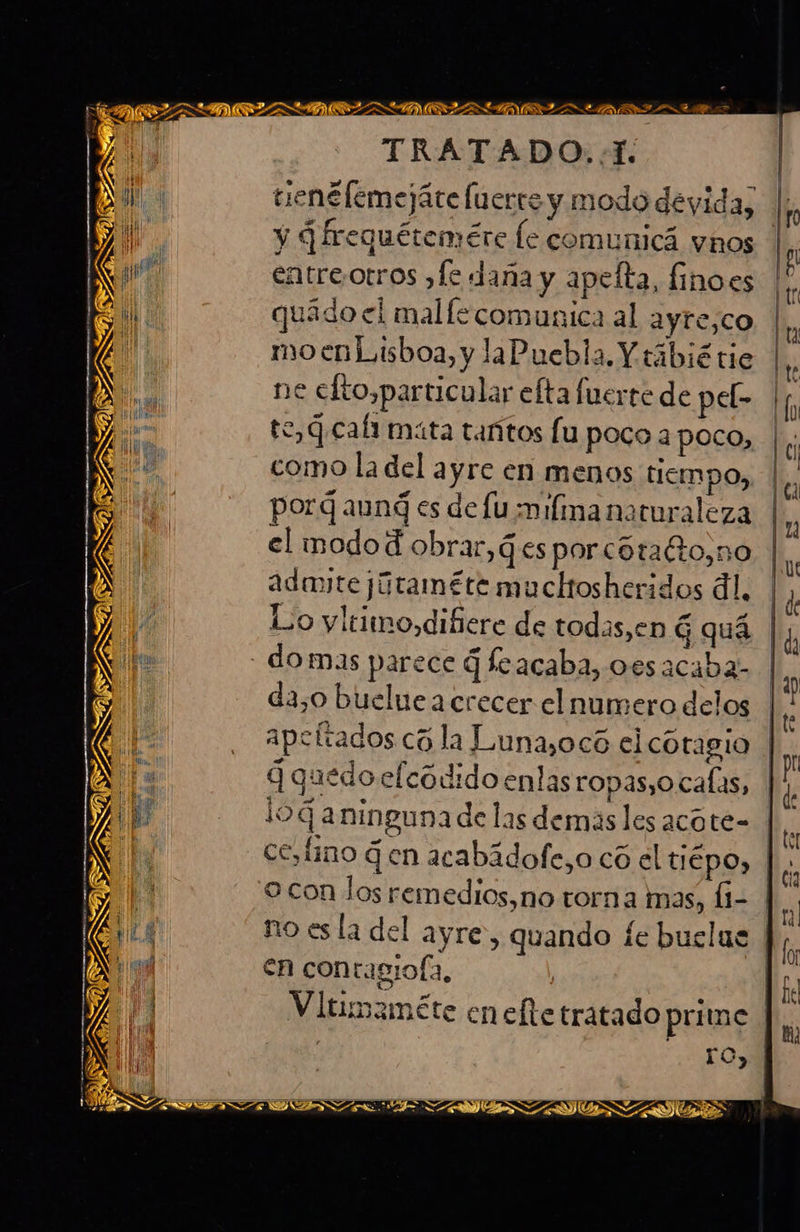 TRATADO. I.
tienẽ ſemejãte ſuerte y modo de vida,
y q̃ frequẽtemẽte ſe comunicã vnos
entre otros, ſe daña y apeſta, ſino es
quãdo el mal ſe comunica al ayre, co
mo en Lisboa, y la Puebla. Y tãbiẽ tie
ne eſto, particular eſta ſuerte de peſ-
te, q̃ caſi mata tantos ſu poco a poco,
como la del ayre en menos tiempo,
porq̃ aunq̃ es de ſu miſma naturaleza
el modo d̃ obrar, q̃ es por cõtacto, no
admite jũtamẽte muchos heridos d̃l.
Lo vltimo, difiere de todas, en q̃ quã
do mas parece q̃ ſe acaba, o es acaba-
da, o buelue a crecer el numero de los
apeſtados cõ la Luna, o cõ el cõtagio
q̃ quedo eſcõdido en las ropas, o caſas,
lo q̃ a ninguna de las demas les acõte-
ce, ſino q̃ en acabãdoſe, o cõ el tiẽpo,
o con los remedios, no torna mas, ſi-
no es la del ayre, quando ſe buelue
en contagioſa.
Vltimamẽte en eſte tratado prime
ro,